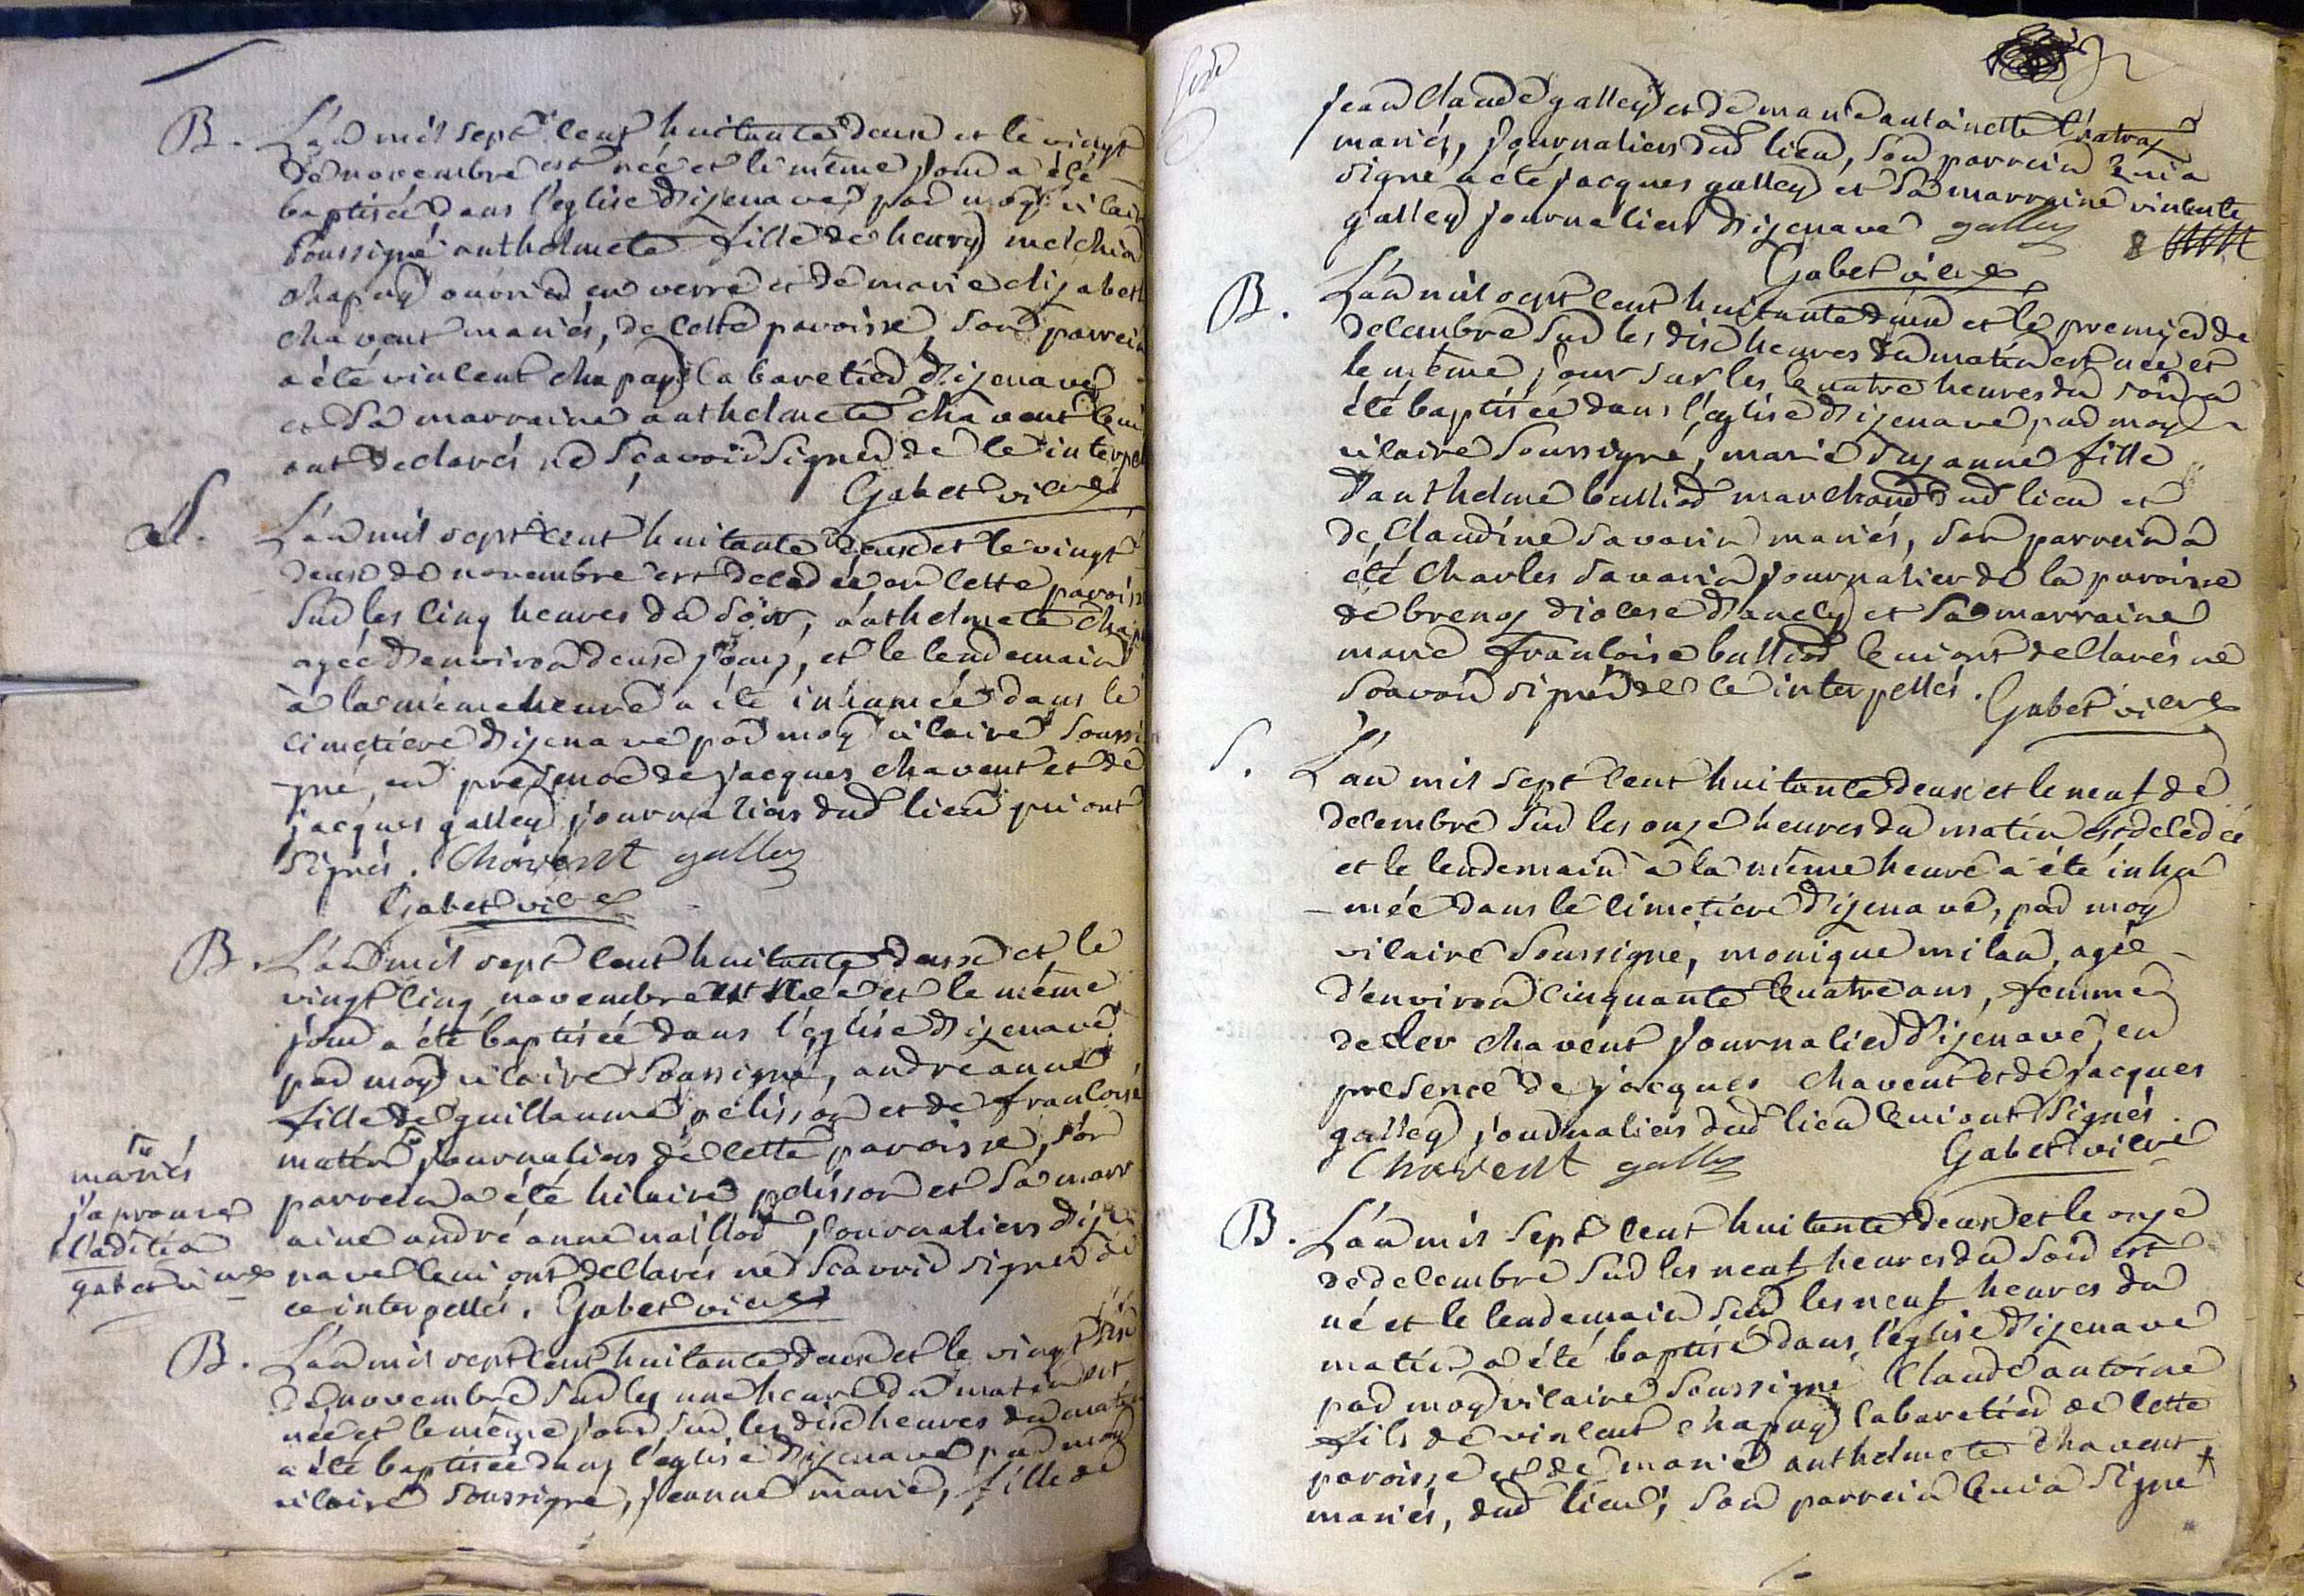 B. L'an mil sept cent huitante deux et le vingt
de novembre est née et le même jour a été
baptisée dans l'eglise d'izenave par moy vicaire
soussigné anthelmete fille de henry melchior
chapuy ouvrier en verre et de marie elizabeth
chavent mariés, de cette paroisse, son parrein
a été vincent chapuy cabaretier d'izenave
et sa marraine anthelmete chavent qui
ont declarés ne sçavoir signer de ce interpel
Gabet vicre
S. L'an mil sept cent huitante deux et le vingt
deux de novembre est decedée en cette paroisse
sur les cinq heures du soir, anthelmete chap
agée d'environ deux jours, et le lendemain
à la même heure a été inhumée dans le
cimetiere d'izenave par moy vicaire soussi
-gné, en presence de jacques chavent et de
jacques galley journaliers dud lieu qui ont
signés. Chavent galley
Gabet vicre
B. L'an mil sept cent huitante deux et le
vingt cinq novembre est née et le même
jour a été baptisée dans l'église d'izenave
par moy vicaire soussigné, andréanne
fille de guillaume pelisson et de francoise
matin journaliers de cette paroisse, son
parrein a été hilaire pelisson et sa marr
aine andré anne naillod, journaliers d'ize
nave qui ont declarés ne scavoir signer de
ce interpellés. Gabet vicre
mariés
j'aprouve
l'adition
gabet vicre
B. L'an mil sept cent huitante deux et le vingt six
de novembre sur les une heure du matin est
née et le même jour sur les dix heures du matin
a été baptisée dans l'église d'izenave par moy
vicaire soussigné, jeanne marie, fille de
jean claude galley et de marie antoinette
mariés, journaliers dud lieu, son parrein qui a
signé a été jacques galley et sa marraine vincente
galley journaliers d'izenave galley
Gabet vicre
B. L'an mil sept cent huitante deux et le premier de
decembre sur les dix heures du matin est née et
le même jour sur les quatre heures du soir a
été baptisée dans l'église d'izenave, par moy
vicaire soussigné, marie suzanne fille
d'anthelme bulliod marchand dud lieu et
de claudine savarin mariés, son parrein a
été charles savarin journalier de la paroisse
de brenoz diocese d'anecy et sa marraine
marie francoise bulliod qui ont declarés ne
scavoir signer de ce interpellés. Gabet vicre
S. L'an mil sept cent huitante deux et le neuf de
decembre sur les onze heures du matin est decedée
et le lendemain a la même heure a été inhu
-mée dans le cimetiere d'izenave, par moy
vicaire soussigné, monique milan, agée
d'environ cinquante quatre ans, femme
de chavent journalier d'izenave, en
presence de jacques chavent et de jacques
galley journaliers dud lieu qui ont signés.
Chavent galley Gabet vicre
B. L'an mil sept cent huitante deux et le onze
de decembre sur les neuf heures du soir est
né et le lendemain sur les neuf heures du
matin a été baptisé dans l'église d'izenave
par moy vicaire soussigné claude antoine
fils de vincent chapuy cabaretier de cette
paroisse et de marie anthelmete chavent
mariés, dud lieu; son parrein qui a signé